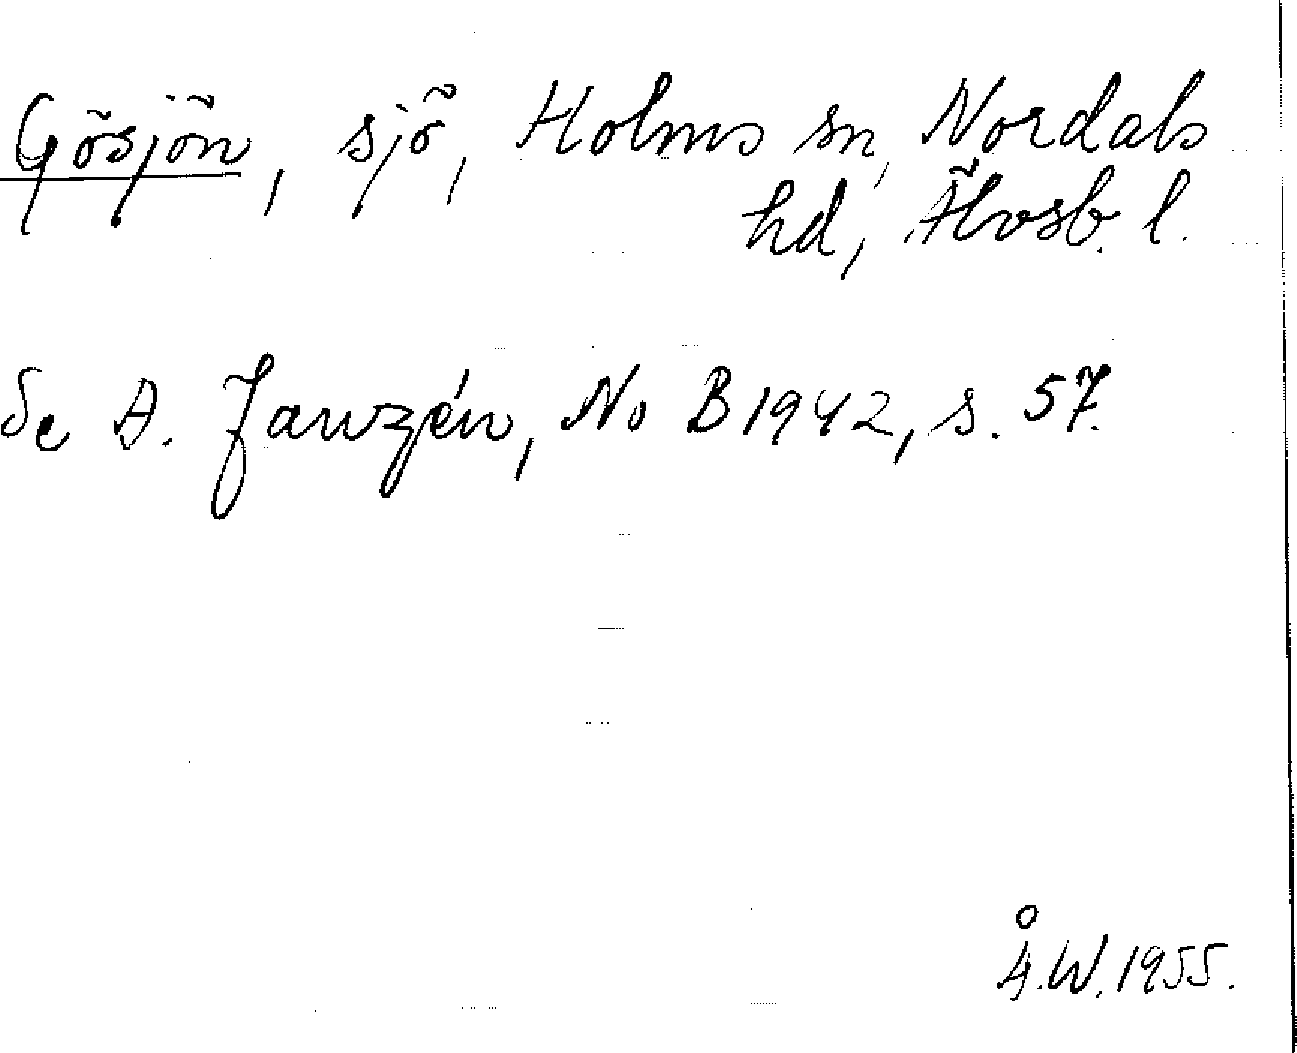 Gösjön, sjö, Holms sn, Nordals
hd, Älvsb. l.
Se A. Janzén, No B 1942, s. 57.
Å.W. 1955.